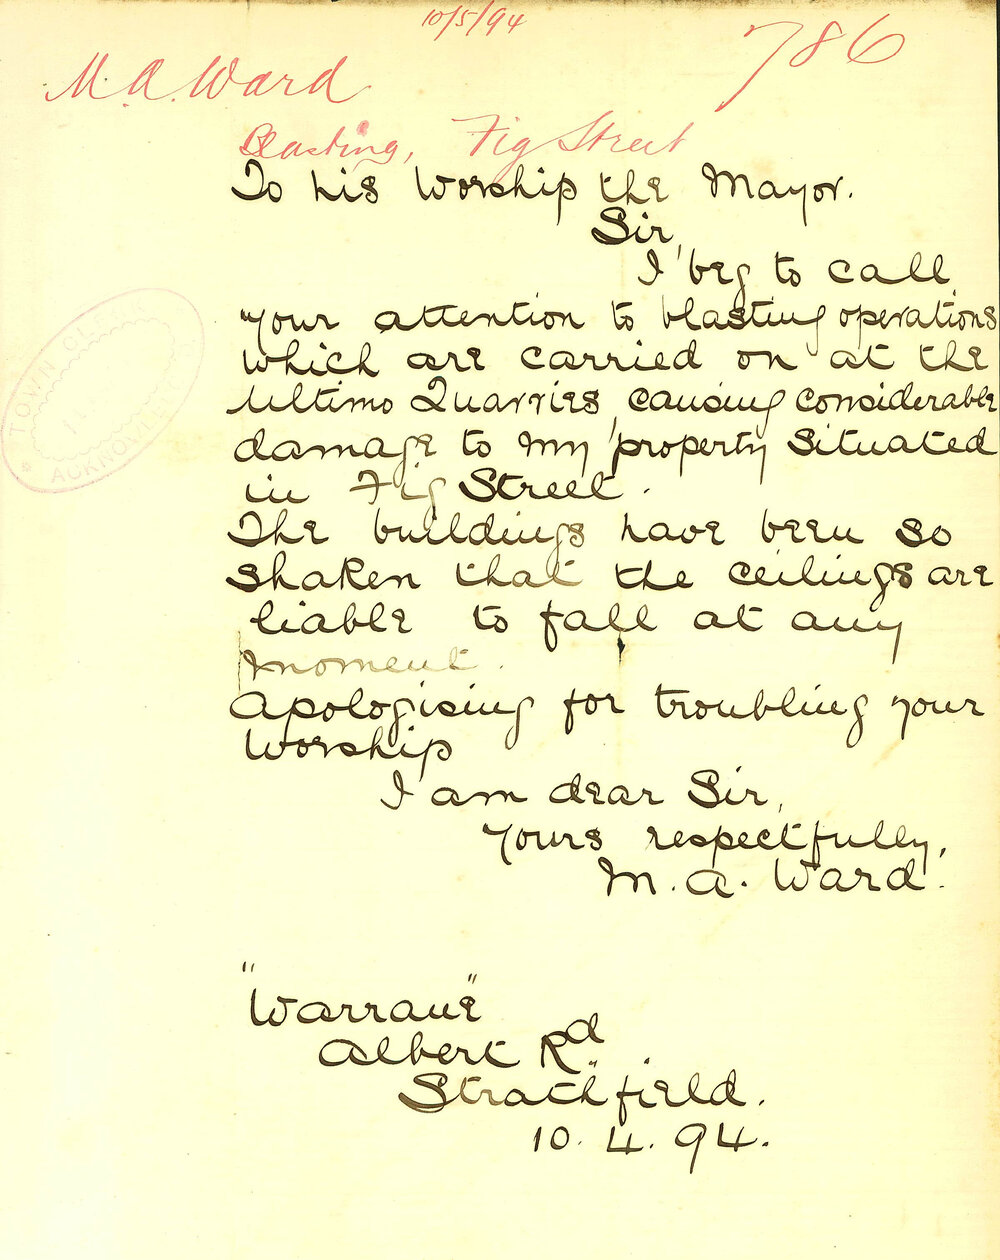 10/5/94
786
M. A. Ward
Blasting, Fig Street
To his Worship the Mayor.
Sir,
I beg to call
your attention to blasting operations
which are carried on at the
Ultimo Quarries, causing considerable
damage to my property situated
in Fig Street.
The buildings have been so
shaken that the ceilings are
liable to fall at any
moment.
Apologising for troubling your
Worship
I am dear Sir,
Yours respectfully,
M. A. Ward.
"Warrane"
Albert Rd.
Strathfield.
10. 4. 94.
TOWN CLERK